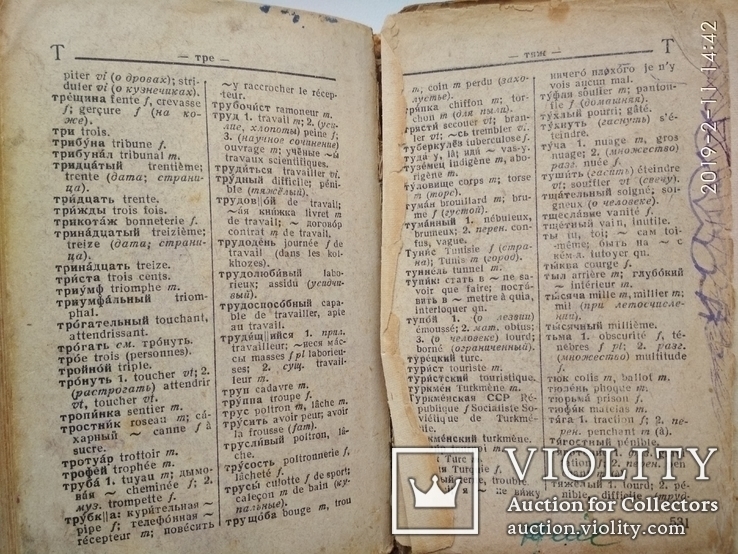 Т
— тре —
piter vi (о дровах); stri-
duler vi (о кузнечиках).
тре́щина fente f, crevasse
f; gerçure f (на ко-
же).
три trois.
трибу́на tribune f.
трибуна́л tribunal m.
тридца́тый trentième;
trente (дата; страни-
ца).
три́дцать trente.
три́жды trois fois.
трикота́ж bonneterie f.
трина́дцатый treizième;
treize (дата; страни-
ца).
трина́дцать treize.
три́ста trois cents.
триу́мф triomphe m.
триумфа́льный triom-
phal.
тро́гательный touchant,
attendrissant.
тро́гать см. тро́нуть.
тро́е trois (personnes).
тройно́й triple.
тро́нуть 1. toucher vt; 2.
(растрогать) attendrir
vt, toucher vt.
тропи́нка sentier m.
тростни́к roseau m; са́-
харный ~ canne f à
sucre.
тротуа́р trottoir m.
трофе́й trophée m.
труба́ 1. tuyau m; дымо-
ва́я ~ cheminée f; 2.
муз. trompette f.
тру́бк||а: кури́тельная ~
pipe f; телефо́нная ~
récepteur m; пове́сить
~у raccrocher le récep-
teur.
трубочи́ст ramoneur m.
труд 1. travail m; 2. (уси-
лие, хлопоты) peine f;
3. (научное сочинение)
ouvrage m; учёные ~ы́
travaux scientifiques.
труди́ться travailler vi.
тру́дный difficile; péni-
ble (тяжёлый).
трудов||о́й de travail;
~а́я кни́жка livret m
de travail; ~ догово́р
contrat m de travail.
трудоде́нь journée f de
travail (dans les kol-
khozes).
трудолюби́вый labo-
rieux; assidu (усидчи-
вый).
трудоспосо́бный capa-
ble de travailler, apte
au travail.
трудя́щ||ийся 1. прил.
travailleur; ~иеся ма́с-
сы masses f pl laborieu-
ses; 2. сущ. travail-
leur m.
труп cadavre m.
тру́ппа troupe f.
трус poltron m, lâche m.
тру́сить avoir peur; avoir
la frousse (fam).
трусли́вый poltron, lâ-
che.
тру́сость poltronnerie f,
lâcheté f.
трусы́ culotte f de sport;
caleçon m de bain (ку-
пальные).
трущо́ба bouge m, trou
— тяж —
Т
m; coin m perdu (захо-
лустье).
тря́пка chiffon m; tor-
chon m (для пыли).
трясти́ secouer vt; bran-
ler vt; ~сь trembler vi.
туберкулёз tuberculose f.
туда́ y, là; là-bas.
тузе́мец indigène m, abo-
rigène m.
ту́ловище corps m; torse
m (торс).
тума́н brouillard m; bru-
me f (густой).
тума́нный 1. nébuleux,
brumeux; 2. перен. con-
fus, vague.
Туни́с Tunisie f (стра-
на); Tunis m (город).
тунне́ль tunnel m.
тупи́к: стать в ~ ne sa-
voir que faire; поста́-
вить в ~ mettre à quia,
interloquer qn.
тупо́й 1. (о лезвии)
émoussé; 2. мат. obtus;
3. (о человеке) lourd;
borné (ограниченный).
туре́цкий turc.
тури́ст touriste m.
тури́стский touristique.
Туркме́н Turkmène m.
Туркме́нская ССР Ré-
publique f Socialiste So-
viétique de Turkmé-
nie.
туркме́нский turkmène.
ничего́ плохо́го je n'y
vois aucun mal.
ту́фля soulier m; pantou-
fle f (домашняя).
ту́хлый pourri; gâté.
ту́хнуть (гаснуть) s'é-
teindre.
ту́ча 1. nuage m, gros
nuage; 2. (множество)
разг. nuée f.
туши́ть (гасить) éteindre
vt; souffler vt (свечу).
тща́тельный soigné; soi-
gneux (о человеке).
тщесла́вие vanité f.
тще́тный vain, inutile.
ты tu, toi; ~ сам toi-
même; быть на ~ с
ке́м-л. tutoyer qn.
ты́ква courge f.
тыл arrière m; глубо́кий
~ intérieur m.
ты́сяча mille m, millier m;
mil (при летосчисле-
нии).
ты́сячный millième.
тьма 1. obscurité f, té-
nèbres f pl; 2. разг.
(множество) multitude
f.
тюк colis m, ballot m.
тюле́нь phoque m.
тюрьма́ prison f.
тюфя́к matelas m.
тя́га 1. traction f; 2. пе-
рен. penchant m (à).
тя́гостный pénible.
тяжёлый 1. lourd; 2. pé-
nible, difficile (труд-
531
2019-2-11 14:42
VIOLITY
Auction for Collectors
auction.violity.com